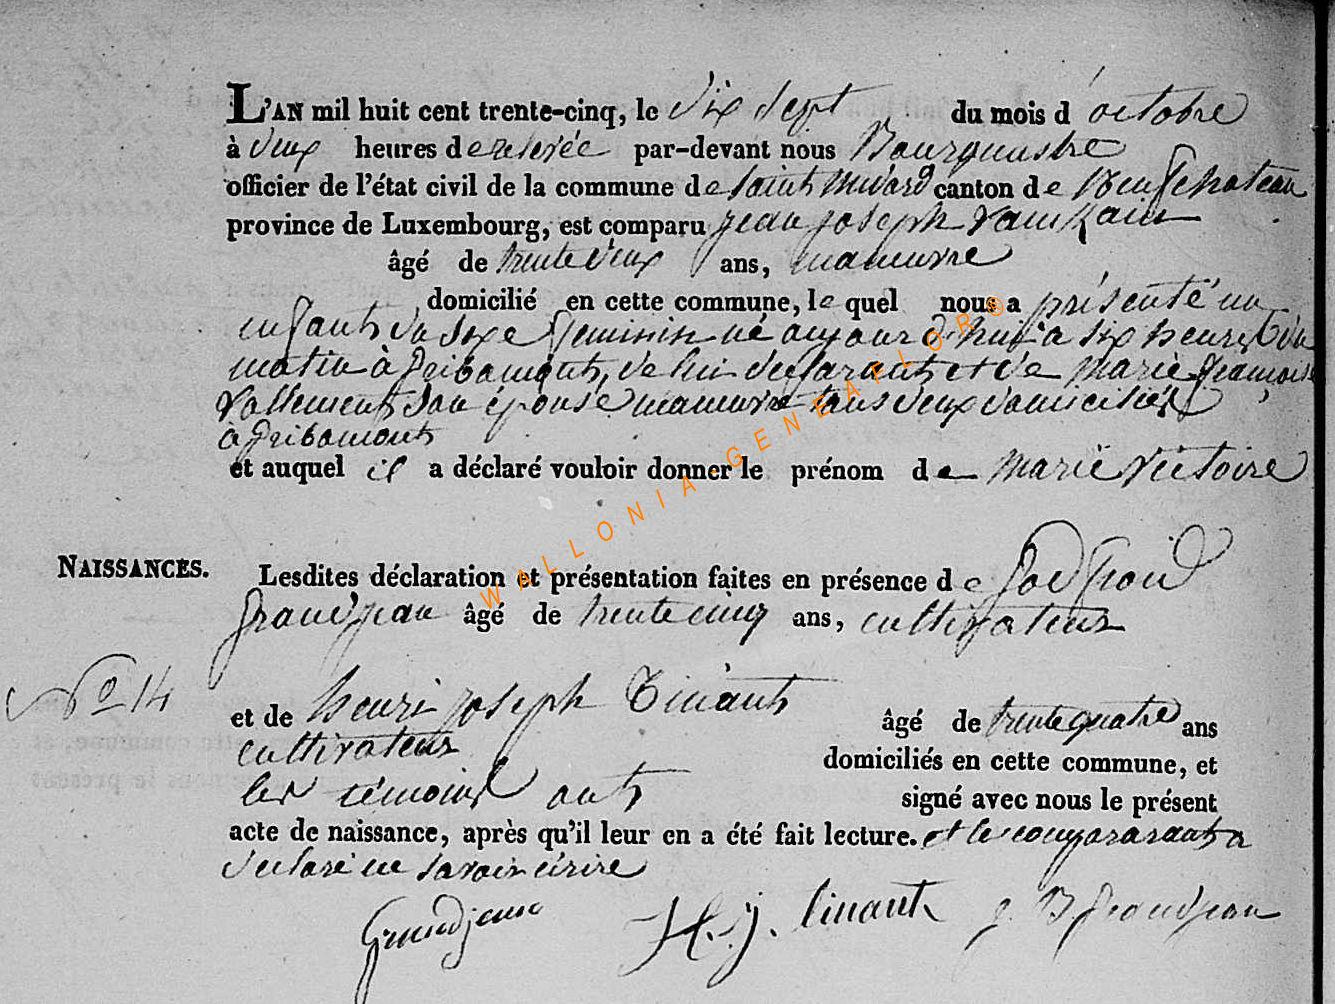 L'AN mil huit cent trente-cinq, le dix sept du mois d'octobre
à deux heures de relevée par-devant nous Bourguastre
officier de l'état civil de la commune de saint Médard canton de Neufchateau
province de Luxembourg, est comparu jean joseph
âgé de trente deux ans, maneuvre
domicilié en cette commune, le quel nous a présenté un
enfant du sexe feminin né aujourd'hui à six heures du
matin à gribomont, de lui declarant et de marie françoise
son épouse maneuvre tous deux domiciliés
à gribomont
et auquel il a déclaré vouloir donner le prénom de marie victoire
NAISSANCES.
Lesdites déclaration et présentation faites en présence de godfroid
grandjean âgé de trente cinq ans, cultivateur
No 14
et de henri joseph Tinant âgé de trente quatre ans
cultivateur domiciliés en cette commune, et
les témoins ont signé avec nous le présent
acte de naissance, après qu'il leur en a été fait lecture. et le comparant a
declaré ne savoir écrire
Grandjean H. J. tinant J B grandjean
WALLONIA GENEAFLOR©